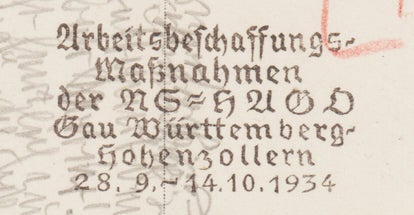 Arbeitsbeschaffungs-
Maßnahmen
der NS-HAGO
Gau Württemberg-
Hohenzollern
28. 9. - 14.10.1934